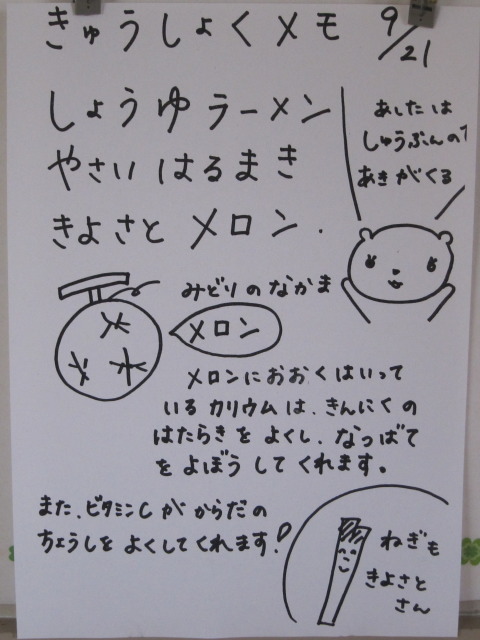 きゅうしょくメモ 9/21
しょうゆラーメン
やさい はるまき
きよさと メロン.
あしたは
しゅうぶんの
あきがくる
みどりのなかま
メロン
メロンにおおくはいって
いるカリウムは、きんにくの
はたらきをよくし、なつばて
をよぼうしてくれます。
また、ビタミンCがからだの
ちょうしをよくしてくれます!
ねぎも
きよさと
さん